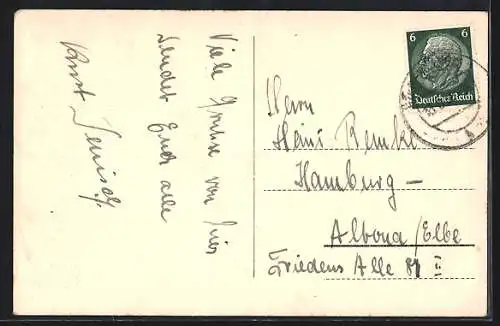 Viele Grüsse von hier
sendet Euch alle
Horst
6 6
Deutsches Reich
Herrn
Heini
Hamburg —
Altona/Elbe
Friedens Alle 81 II